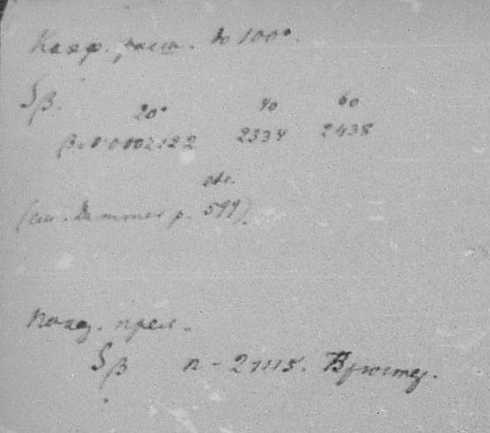 Коэф. расш. до 100°.
Sβ.
20° 40 60
β=0.0002122 2334 2438
etc.
(см. Dammer p. 599).
Показ. прел.
Sβ n - 2.1115. Брюстер.